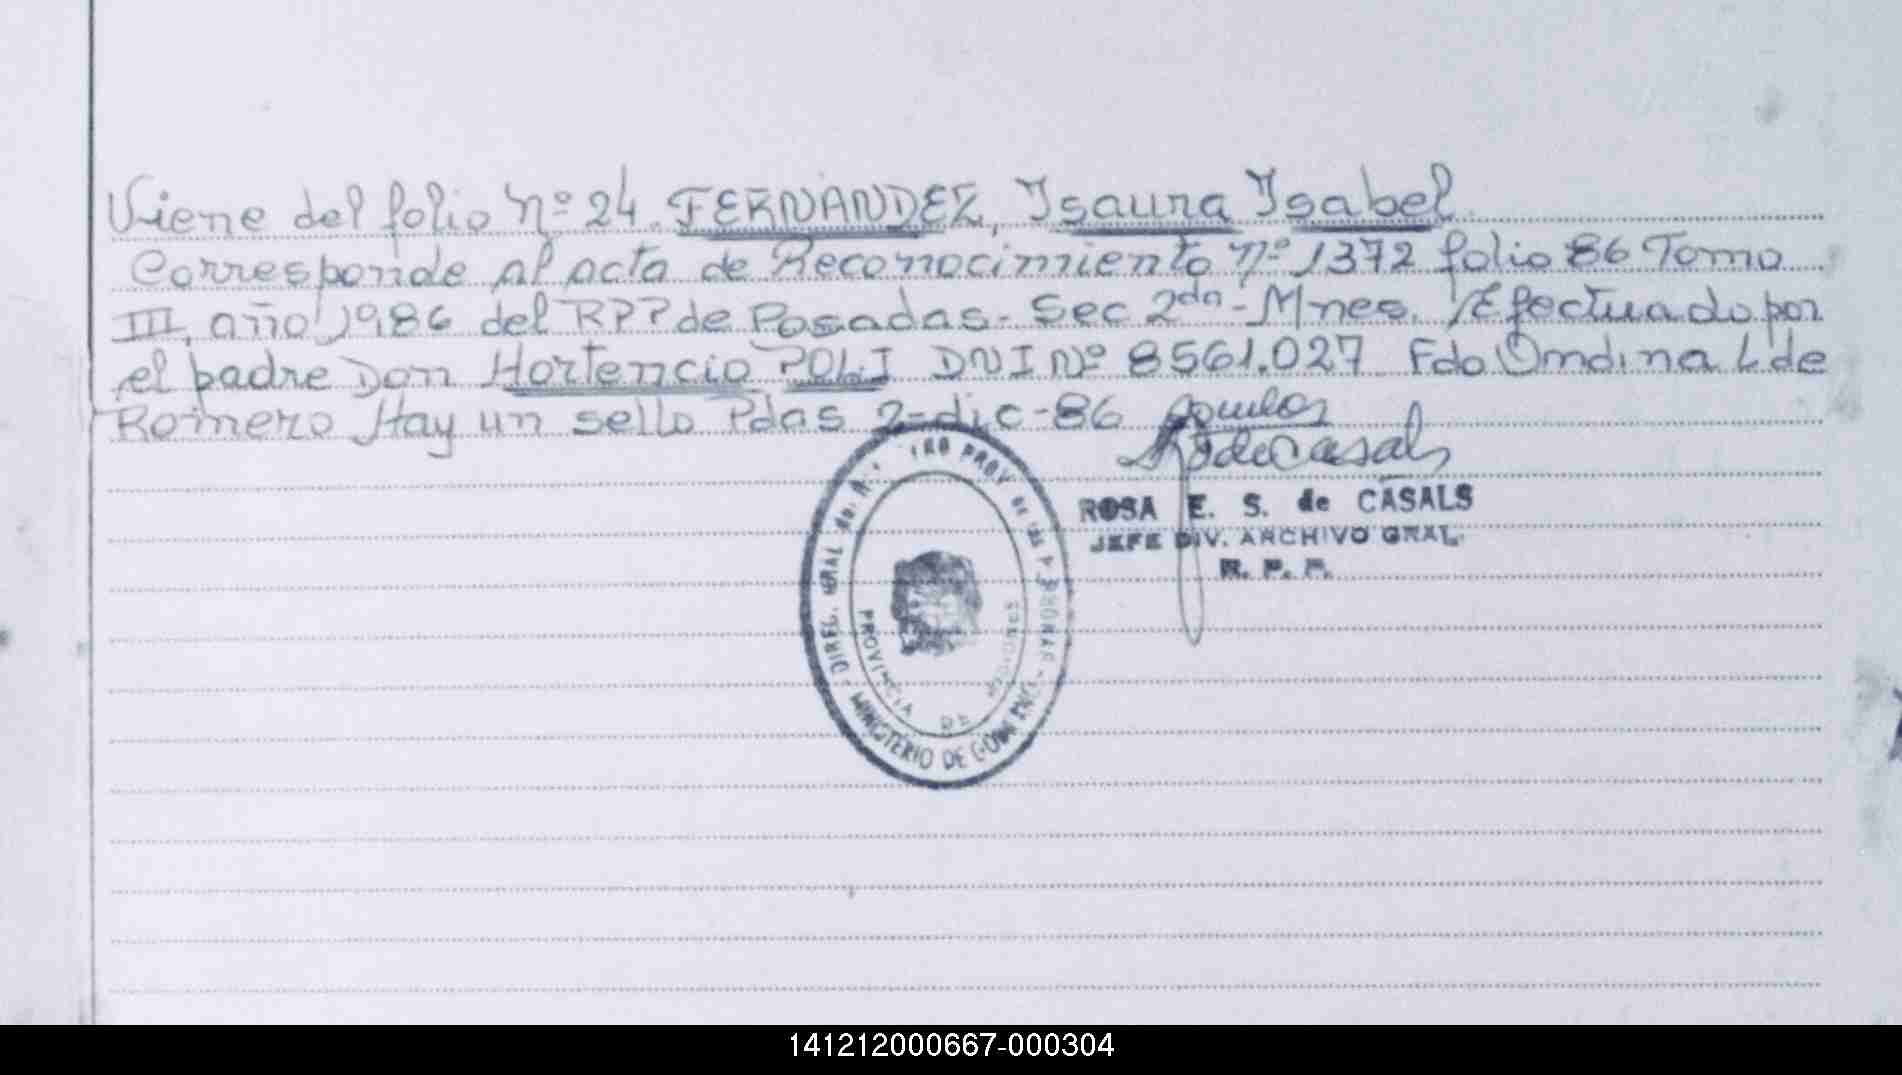 Viene del folio Nº 24. FERNANDEZ, Isaura Isabel
Corresponde al acta de Reconocimiento Nº 1372 folio 86 Tomo
III, año 1986 del RPP de Posadas - Sec 2da - Mnes. Efectuado por
el padre Don Hortencio POLI DNI Nº 8561.027 Fdo Ondina L de
Romero Hay un sello Pdas 2-dic-86
RdeCasals
ROSA E. S. de CASALS
JEFE DIV. ARCHIVO GRAL.
R. P. P.
PROV de las P
MINISTERIO DE
PROVINCIA DE MISIONES
141212000667-000304